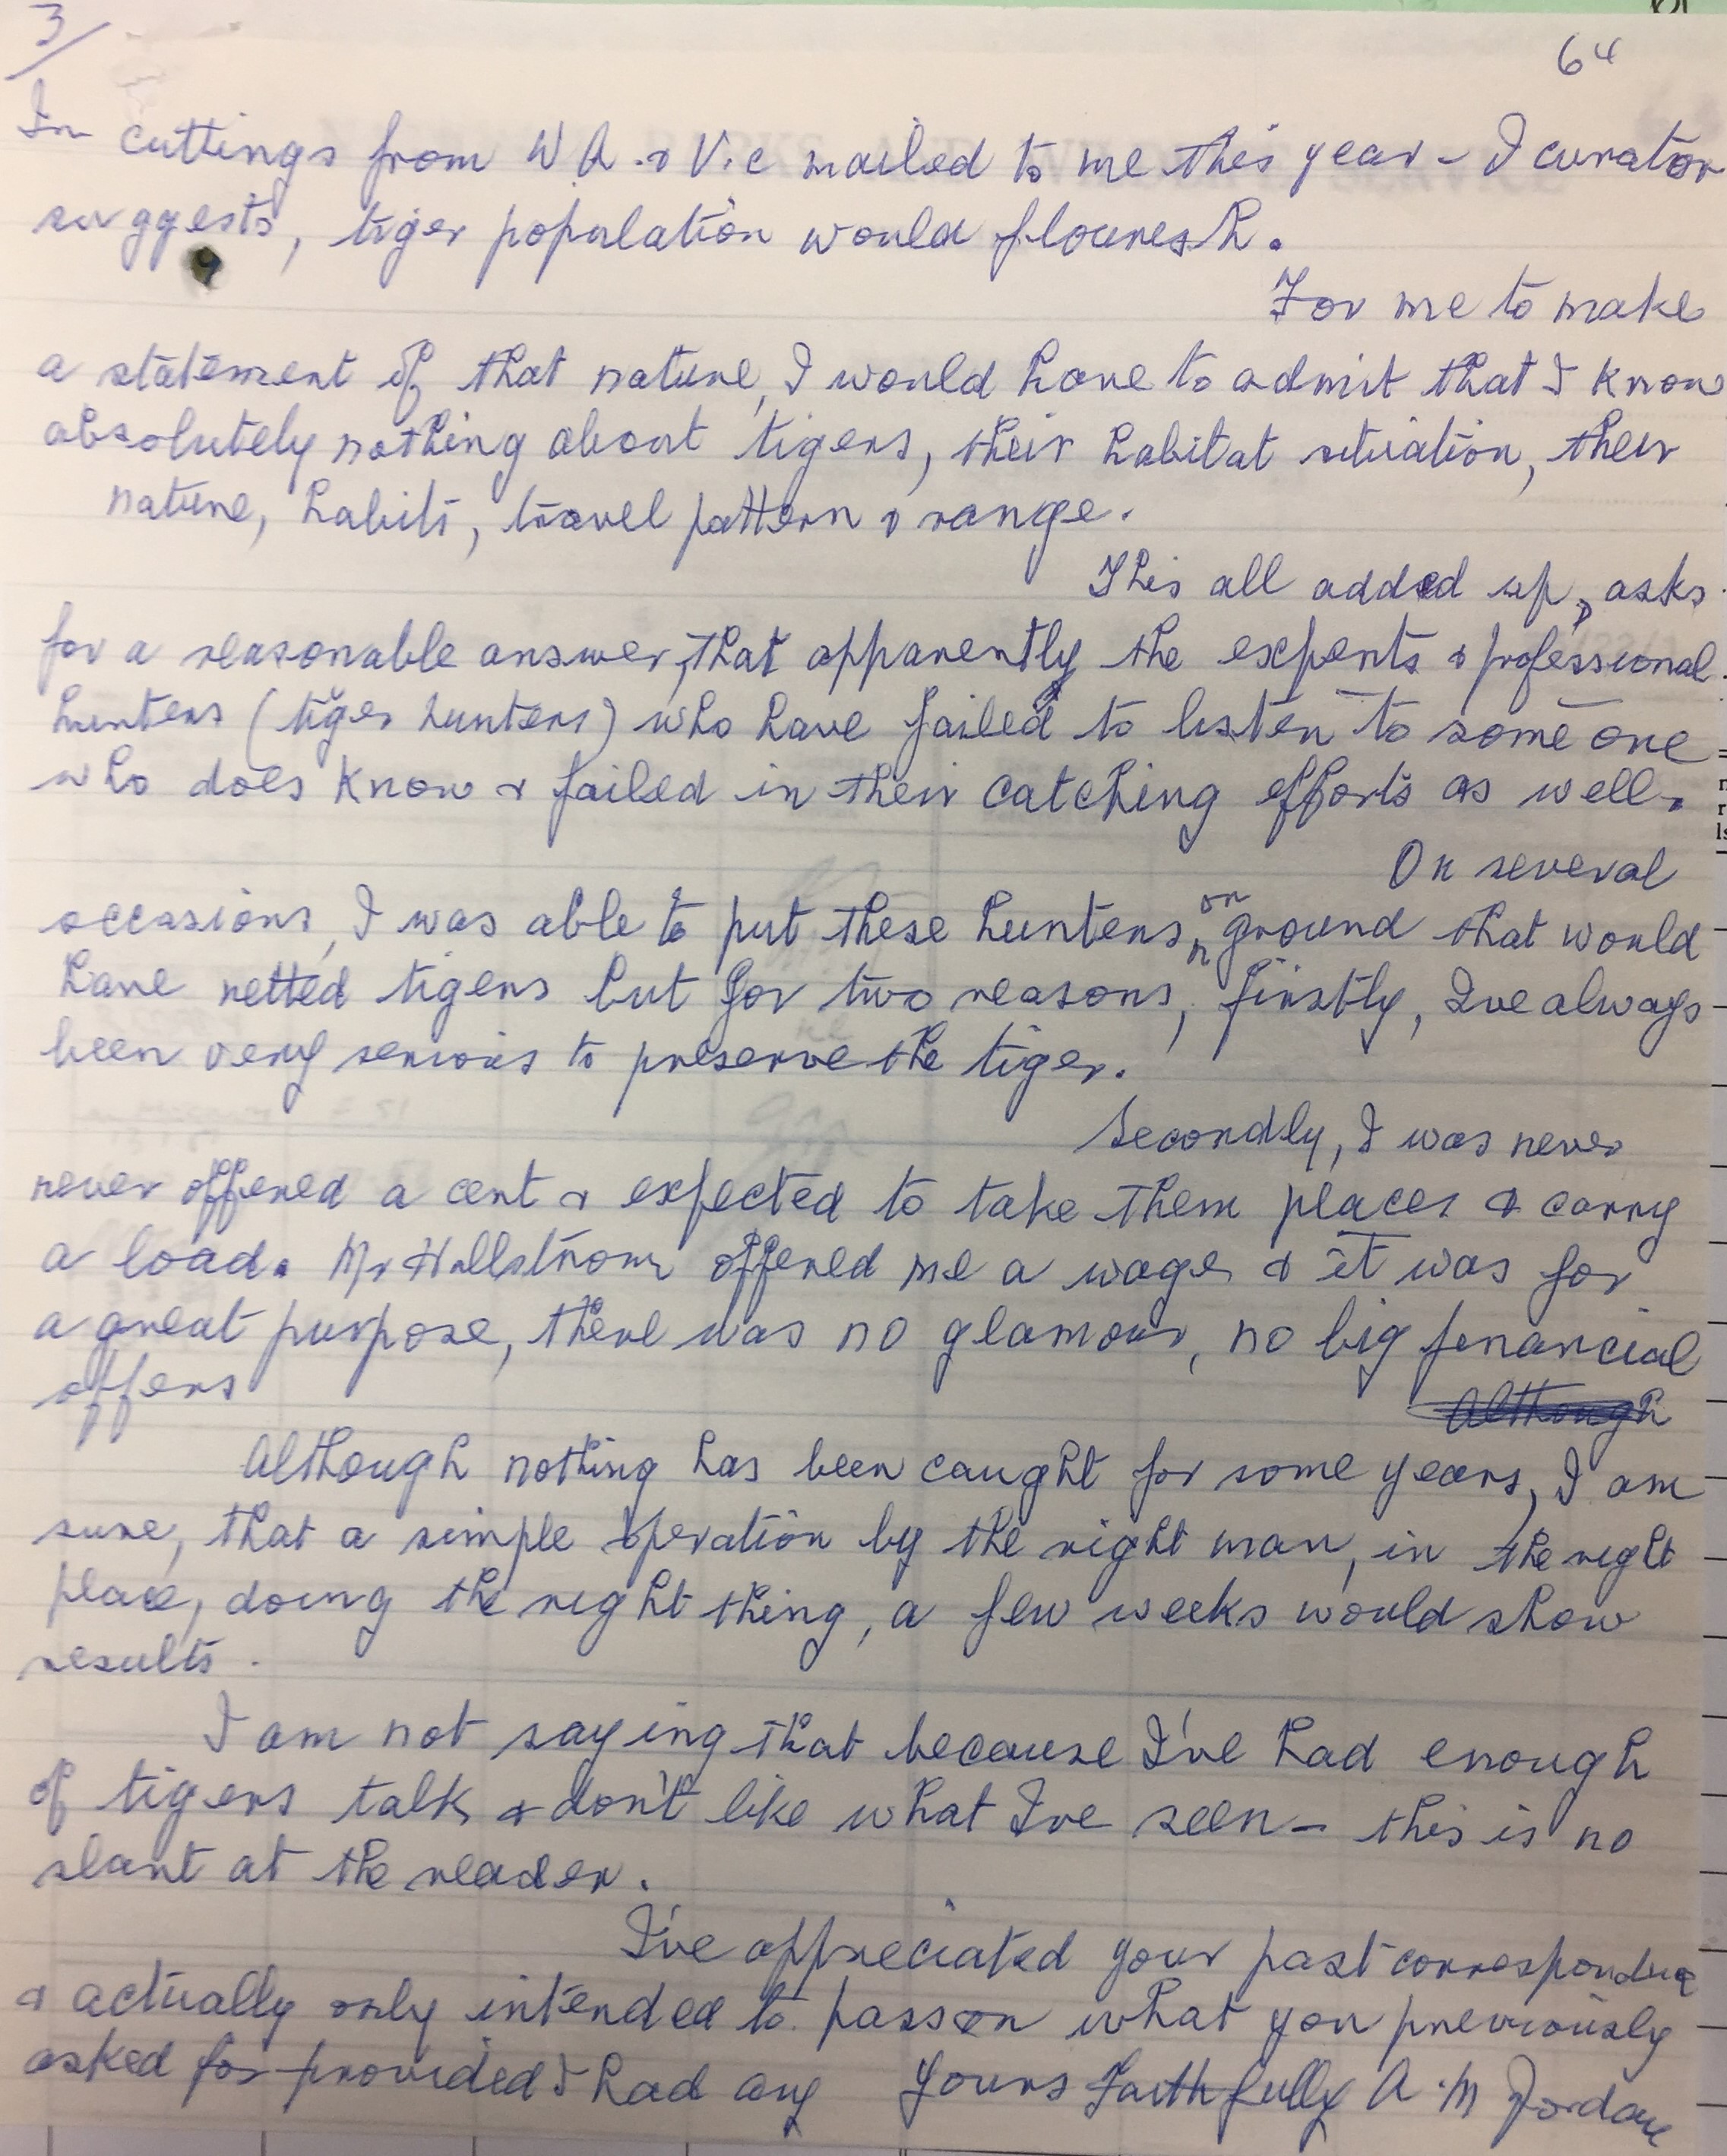 3/
64
In cuttings from W A. & Vic mailed to me this year - I curator
suggests, tiger population would flourish.
For me to make
a statement of that nature, I would have to admit that I know
absolutely nothing about tigers, their habitat situation, their
nature, habits, travel pattern & range.
This all added up, asks
for a reasonable answer, that apparently the experts & professional
hunters (tiger hunters) who have failed to listen to some one
who does know & failed in their catching efforts as well.
On several
occasions, I was able to put these hunters on ground that would
have netted tigers but for two reasons, firstly, I've always
been very serious to preserve the tiger.
Secondly, I was never
never offered a cent & expected to take them places & carry
a load. Mr Hallstrom offered me a wage & it was for
a great purpose, there was no glamour, no big financial
offers
Although
Although nothing has been caught for some years, I am
sure, that a simple operation by the right man, in the right
place, doing the right thing, a few weeks would show
results.
I am not saying that because I've had enough
of tigers talk & don't like what I've seen - this is no
slant at the reader.
I've appreciated your past correspondence
& actually only intended to pass on what you previously
asked for provided I had any Yours Faithfully A.M Jordan